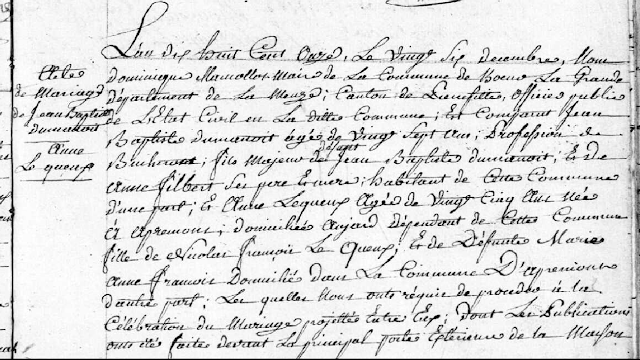 Acte
de Mariage
de Jean Baptiste
dumanoit
Anne
Le queux
L'an dix huit Cent Onze, Le Vingt Six decembre, Nous
dominique Maire de La Commune de La Grande
département de La Meuze; Canton de Pierrefitte, Officier public
de L'Etat Civil en La ditte Commune; Est Comparut Jean
Baptiste dumanoit agé de Vingt Sept ans; Profession de
Bucheront; fils Majeur de défunt Jean Baptiste dumanoit; Et De
anne filbert Ses pere Et mere; habitant de Cette Commune
d'une part; Et Anne Lequeux Agée de Vingt Cinq Ans Née
à Apremont; domiciliée dépendant de Cette Commune
fille de Nicolas françois Le Queux; Et de Défunte Marie
Anne françois Domicilié dans La Commune D'Apremont
d'autre part; Les quelles Nous onts réquis de proceder à la
Célébration du Mariage projettée entre Eux; dont Les Publications
onts été faites devant La principal porte Extérieure de la Maison